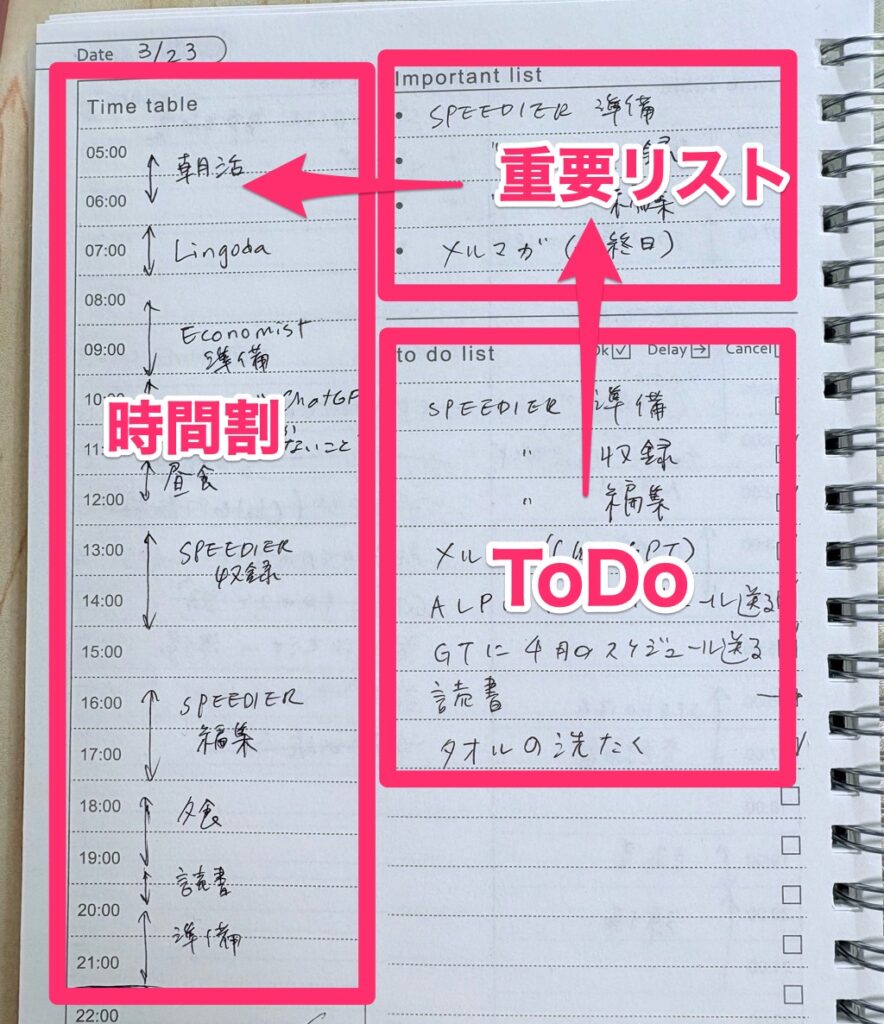 Date 3/23
Time table
05:00
朝活
06:00
07:00
Lingoda
08:00
Economist
09:00
準備
10:00
ChatGP
時間割
ないこと
昼食
12:00
13:00
SPEEDIER
収録
14:00
15:00
16:00
SPEEDIER
編集
17:00
18:00
夕食
19:00
読書
20:00
準備
21:00
22:00
Important list
• SPEEDIER 準備
• " 録
重要リスト
• 編集
• メルマガ ( 終日)
to do list
Ok Delay Cancel
SPEEDIER 準備
" 収録
" 編集
メル PT)
ToDo
ALP ール送る
GTに4月のスケジュール送る
読書 →
タオルの洗たく